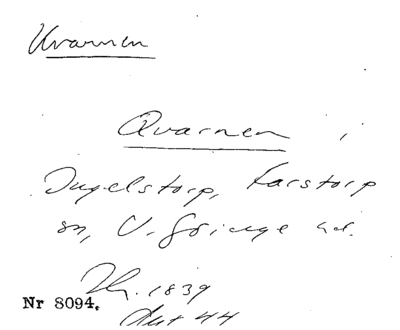 Kvarnen
Qvarnen i
Ingelstorp, Farstorp
sn, V. Göinge hd.
1839
Nr 8094.
44